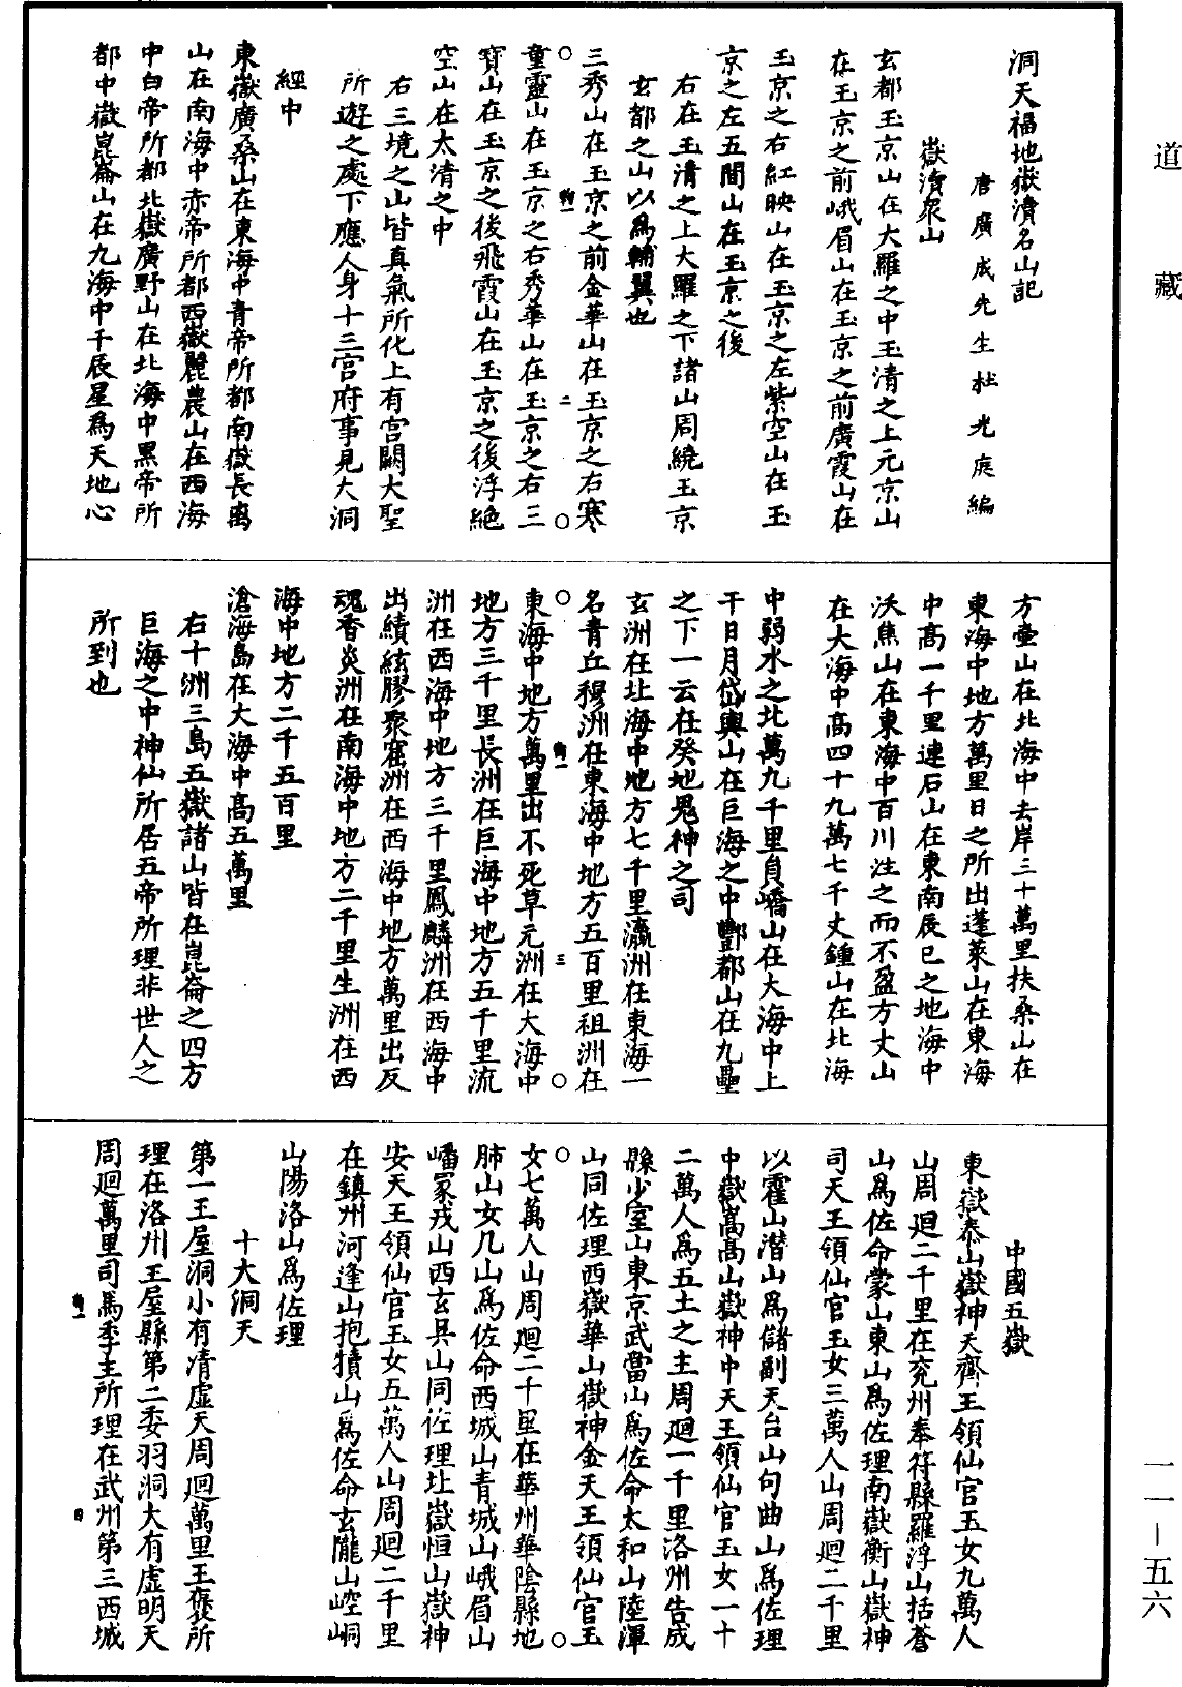 道藏
洞天福地嶽瀆名山記
唐廣成先生杜光庭編
嶽瀆眾山
玄都玉京山在大羅之中玉清之上元京山
在玉京之前峨眉山在玉京之前廣霞山在
玉京之右紅映山在玉京之左紫空山在玉
京之左五間山在玉京之後
右在玉清之上大羅之下諸山周繞玉京
玄都之山以為輔翼也
三秀山在玉京之前金華山在玉京之右寒
童靈山在玉京之右秀華山在玉京之右三
寶山在玉京之後飛霞山在玉京之後浮絕
空山在太清之中
右三境之山皆真氣所化上有宮闕大聖
所遊之處下應人身十三宮府事見大洞
經中
東嶽廣桑山在東海中青帝所都南嶽長離
山在南海中赤帝所都西嶽麗農山在西海
中白帝所都北嶽廣野山在北海中黑帝所
都中嶽崑崙山在九海中千辰星為天地心
方壺山在北海中去岸三十萬里扶桑山在
東海中地方萬里日之所出蓬萊山在東海
中高一千里連石山在東南辰巳之地海中
沃焦山在東海中百川注之而不盈方丈山
在大海中高四十九萬七千丈鍾山在北海
中弱水之北萬九千里員嶠山在大海中上
干日月岱輿山在巨海之中酆都山在九壘
之下一云在癸地鬼神之司
玄洲在北海中地方七千里瀛洲在東海一
名青丘穆洲在東海中地方五百里祖洲在
東海中地方萬里出不死草元洲在大海中
地方三千里長洲在巨海中地方五千里流
洲在西海中地方三千里鳳麟洲在西海中
出續絃膠聚窟洲在西海中地方萬里出反
魂香炎洲在南海中地方二千里生洲在西
海中地方二千五百里
滄海島在大海中高五萬里
右十洲三島五嶽諸山皆在崑崙之四方
巨海之中神仙所居五帝所理非世人之
所到也
中國五嶽
東嶽泰山嶽神天齊王領仙官玉女九萬人
山周迴二千里在兗州奉符縣羅浮山括蒼
山為佐命蒙山東山為佐理南嶽衡山嶽神
司天王領仙官玉女三萬人山周迴二千里
以霍山潛山為儲副天台山句曲山為佐理
中嶽嵩高山嶽神中天王領仙官玉女一十
二萬人為五土之主周迴一千里洛州告成
縣少室山東京武當山為佐命太和山陸渾
山同佐理西嶽華山嶽神金天王領仙官玉
女七萬人山周迴二千里在華州華陰縣地
肺山女几山為佐命西城山青城山峨眉山
嶓冢戎山西玄具山同佐理北嶽恒山嶽神
安天王領仙官玉女五萬人山周迴二千里
在鎮州河逢山抱犢山為佐命玄隴山崆峒
山陽洛山為佐理
十大洞天
第一王屋洞小有清虛天周迴萬里王褒所
理在洛州王屋縣第二委羽洞大有虛明天
周迴萬里司馬季主所理在武州第三西城
一一—五六